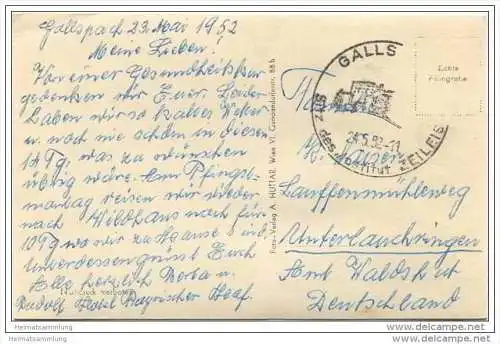 Gallspach 23. Mai 1952
Meine Lieben!
Von einer Gesundheitskur
gedenken wir Euer. Leider
haben wir so kaltes Wetter
u. noch nie schön in diesen
14 Tg, was zu wünschen
übrig wäre. Am Pfingst-
montag reisen wir wieder
nach Wildhaus noch für
10 Tg wo wir zu Hause sind
Unterdessen grüsst Euch
Alle herzlich Berta u.
Rudolf Hotel Bayrischer Hof.
Nachdruck verboten
Foto-Verlag A. HUTTAR, Wien VI, Gumpendorferstr. 88b
GALLS
24.5.52-11
des Institut ZEILEIS
Echte
Fotografie
Familie
Lauffenmühleweg
Unterlauchringen
Amt Waldshut
Deutschland
Heimatsammlung
heimatsammlung.de
Heimatsammlung
heimatsammlung.de